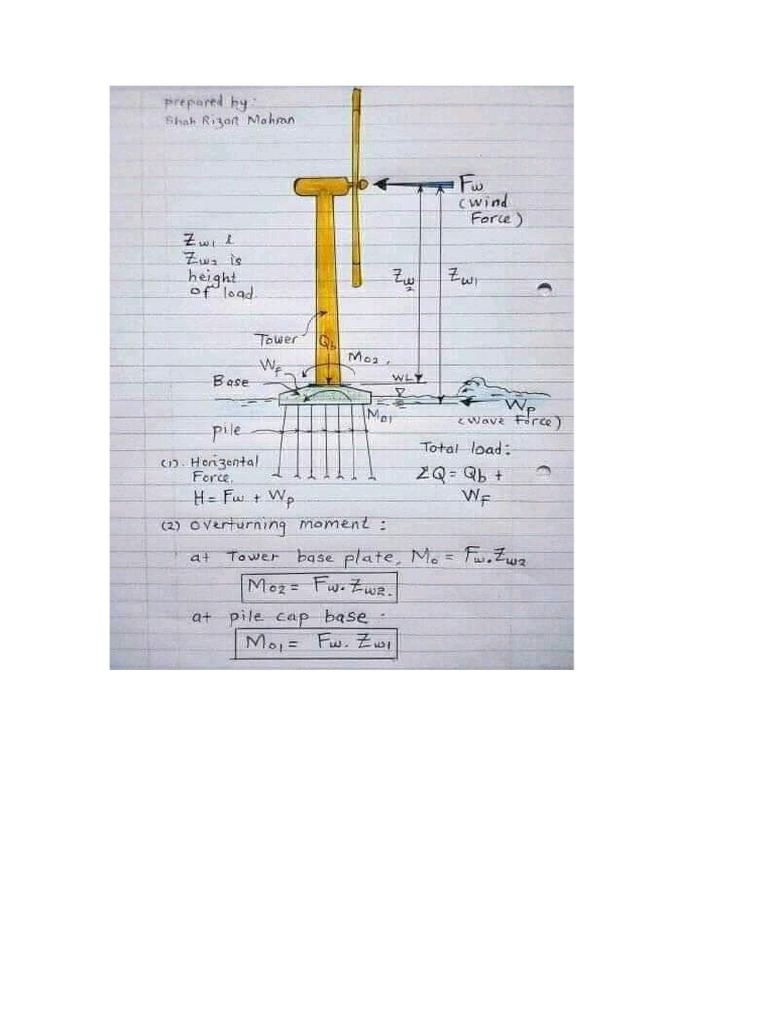 prepared by:
Shah Rizan Mahran
Fw
(wind
Force)
Zw1 &
Zw2 is
height
of load.
Zw2
Zw1
Tower
Qb
Mo2.
Wf
Base
WL
Wp
(wave Force)
Mo1
pile
(1). Horizontal
Force.
H = Fw + Wp
Total load:
ΣQ = Qb +
WF
(2) overturning moment :
at Tower base plate, Mo = Fw.Zw2
Mo2 = Fw.Zw2.
at pile cap base :
Mo1 = Fw. Zw1